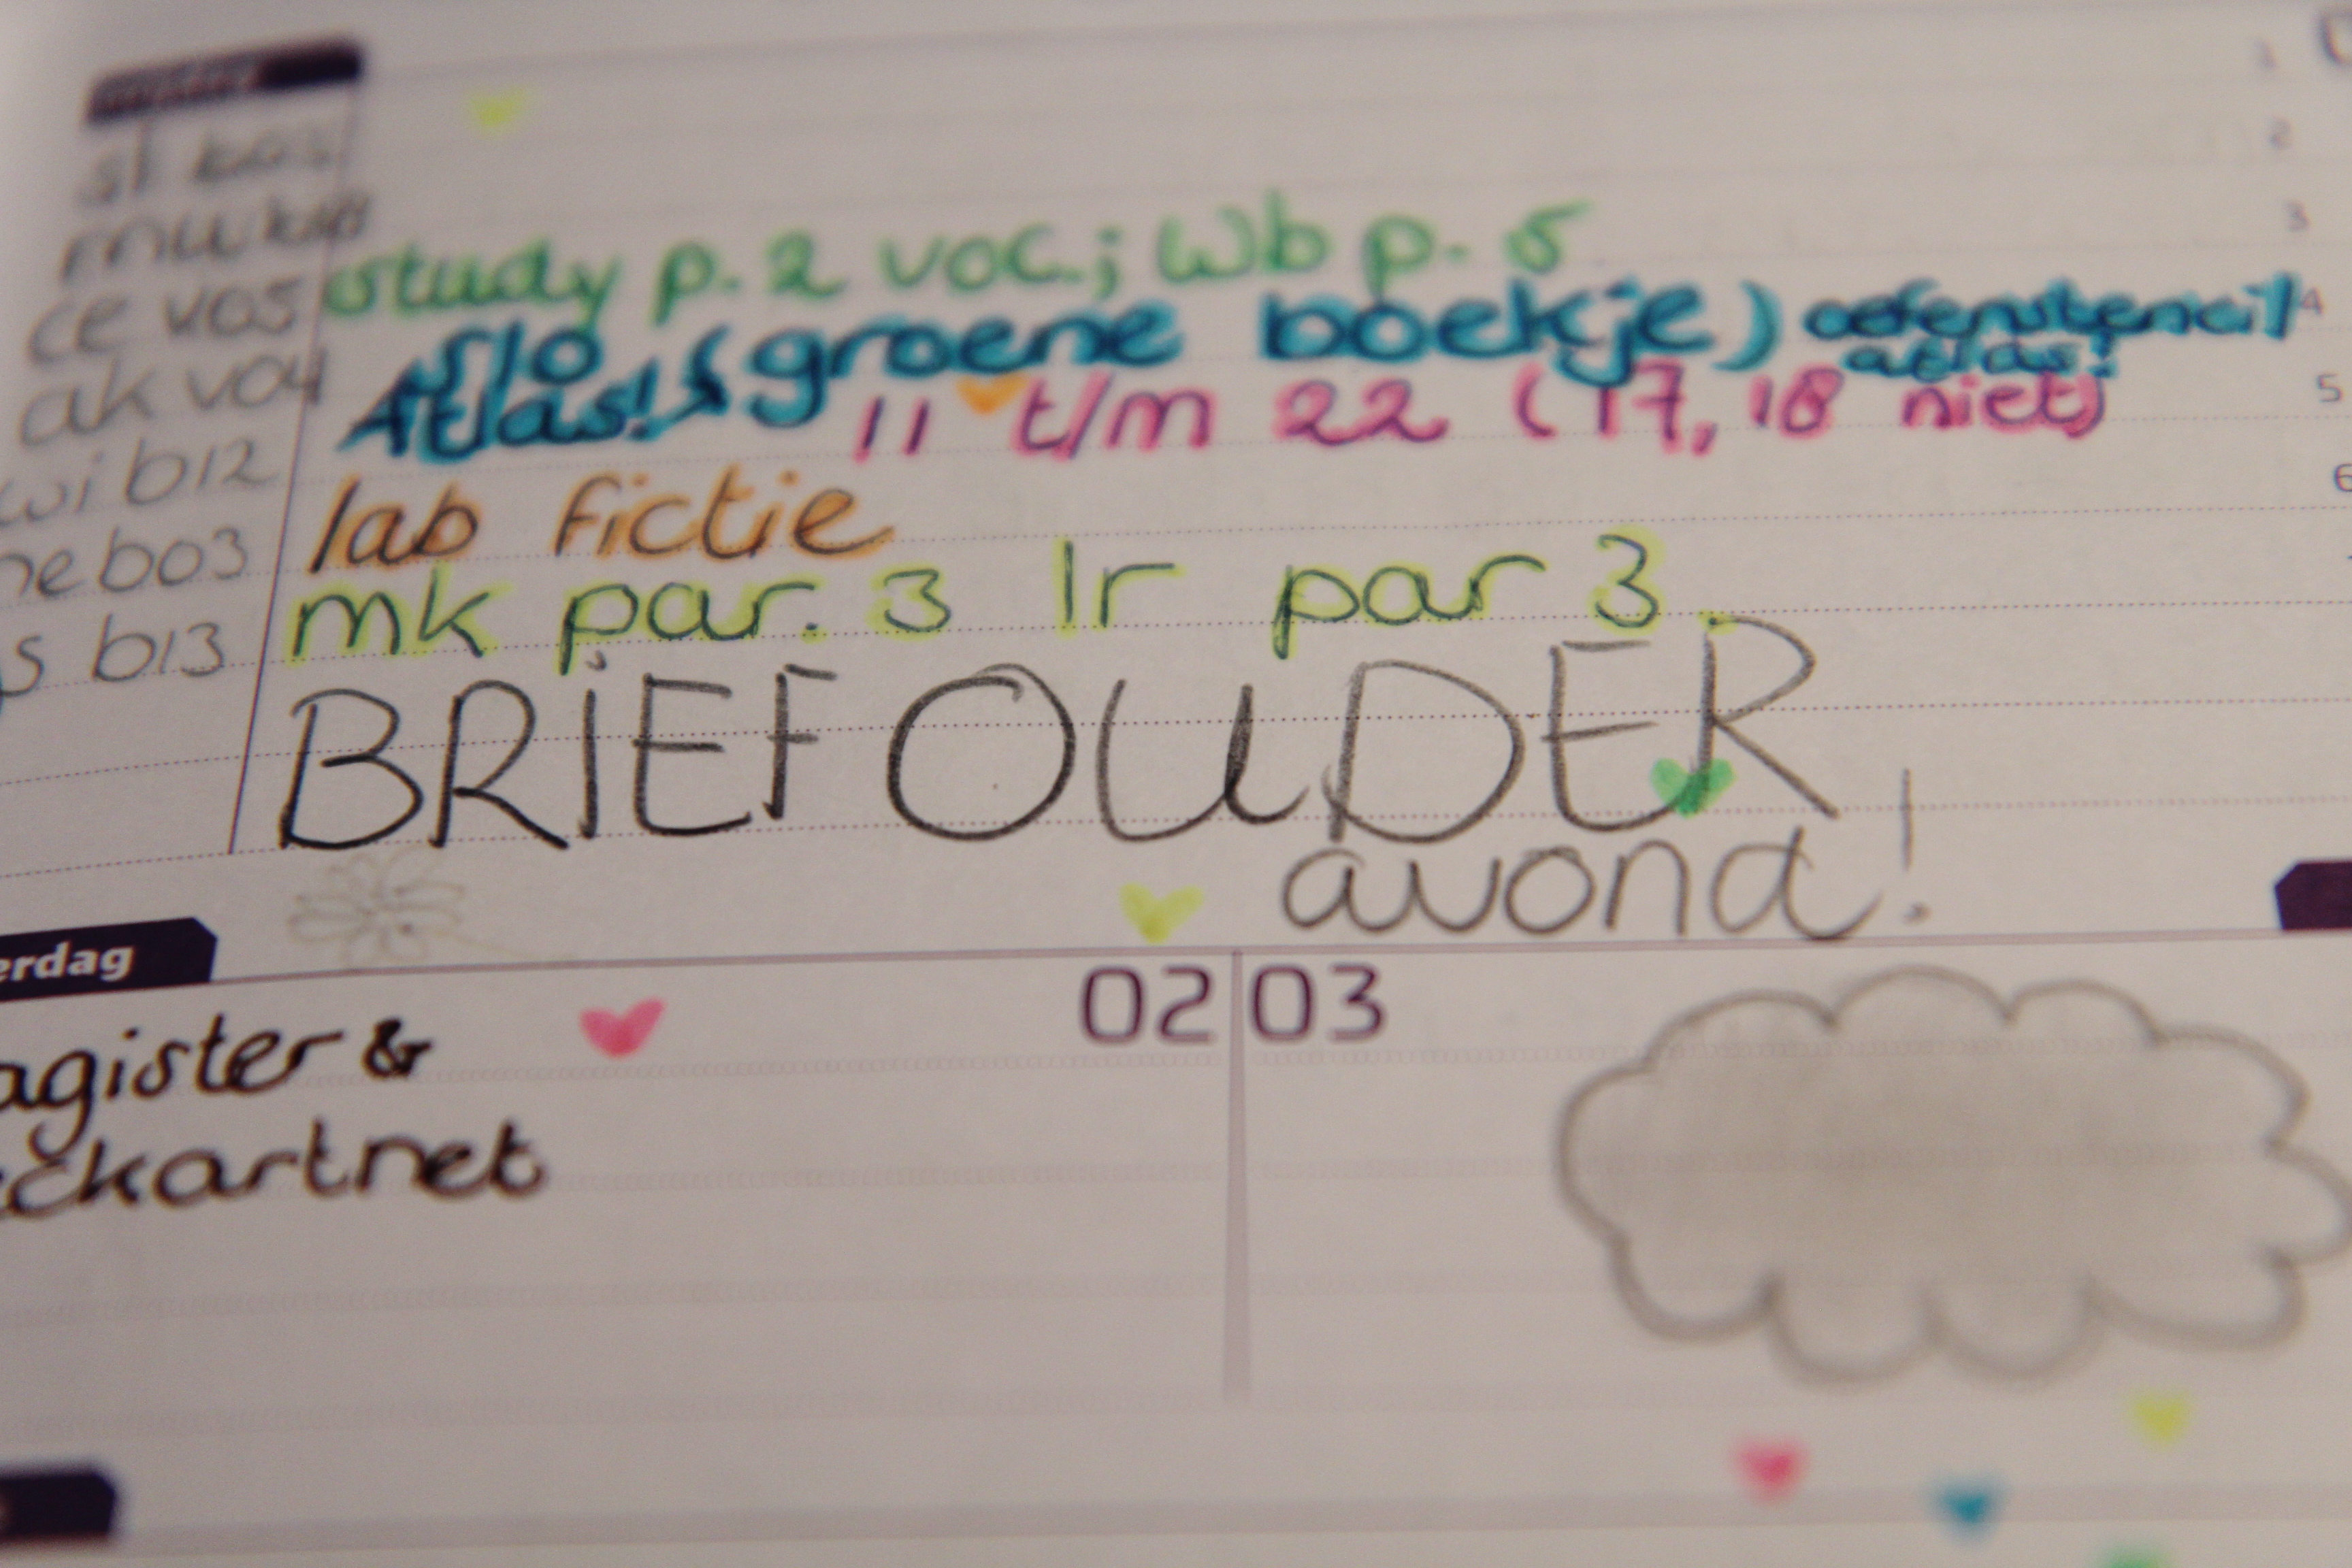 ce v05 study p. 2 voc.; Wb p. 5
ak v04 Atlas! S10 (groene boekje) oefenstencil atlas!
wi b12 11 t/m 22 (17, 18 niet)
ne b03 lab fictie
s b13 mk par. 3 lr par 3.
BRIEF OUDER
avond!
erdag
02 03
agister &
ckartnet
1
2
3
4
5
6